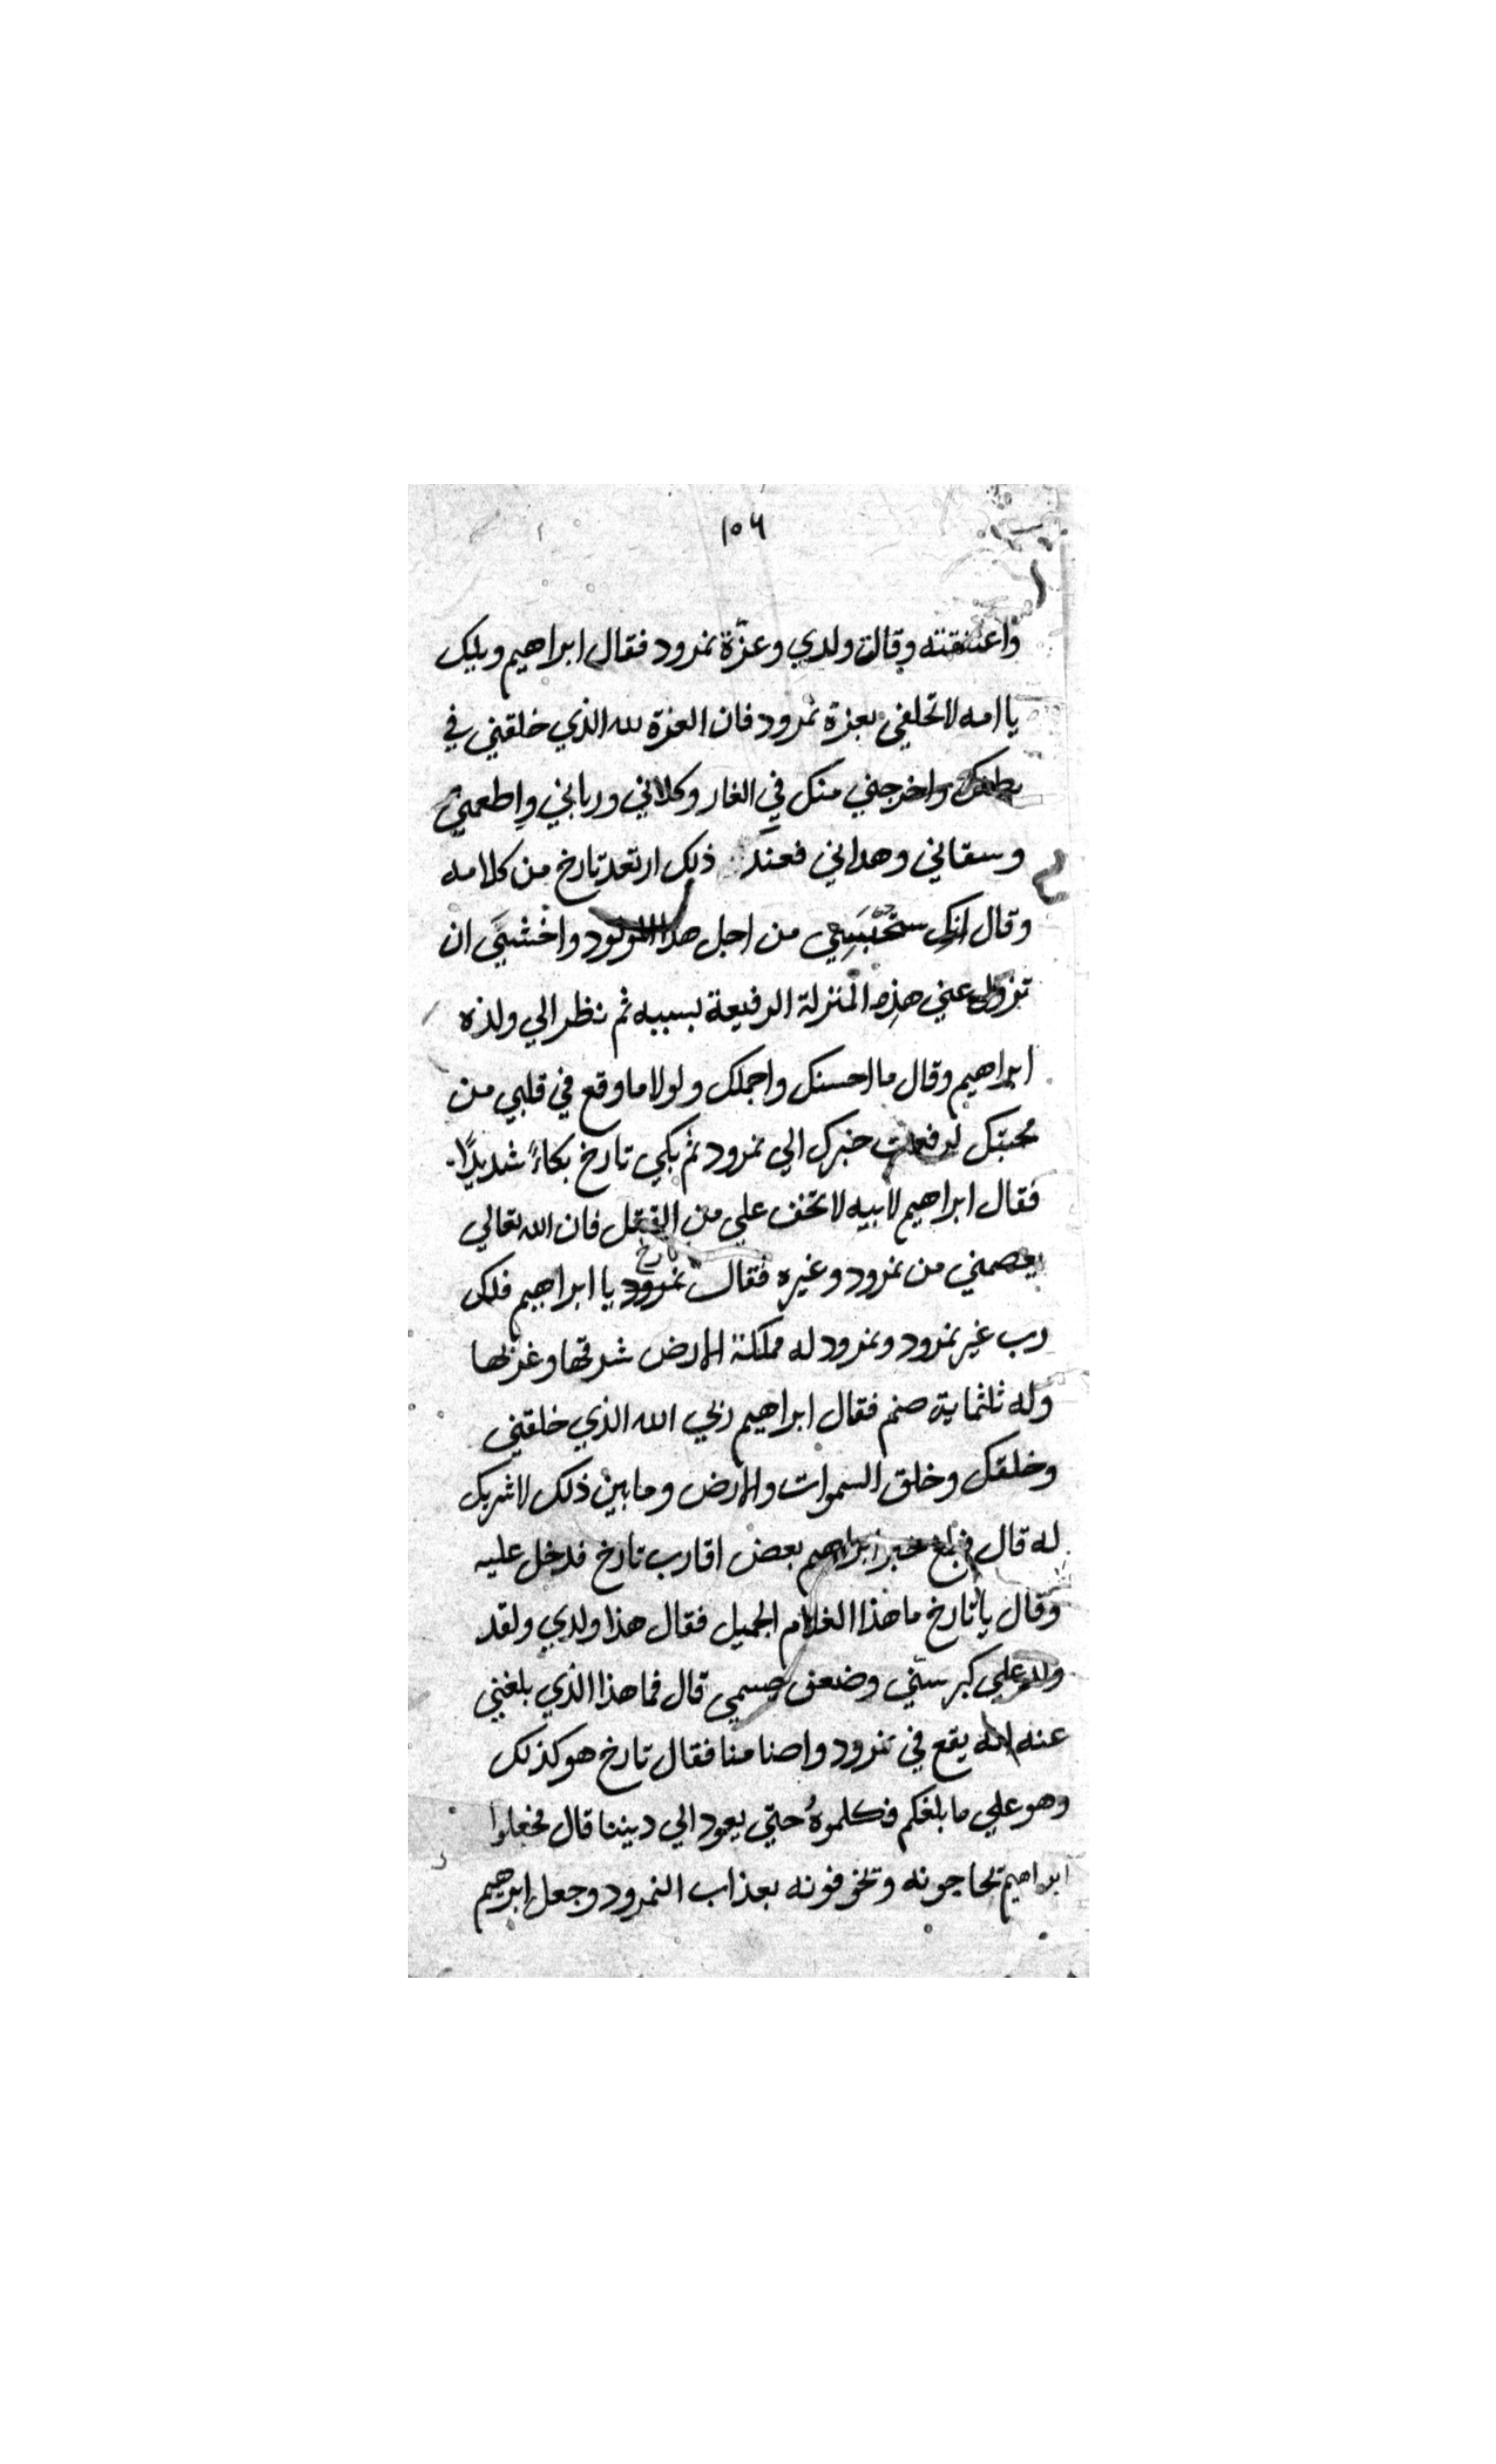 ١٥٦
واعتنقته وقالت ولدي وعزّة نمرود فقال ابراهيم ويلك
يا امه لا تحلفي بعزة نمرود فان العزة لله الذي خلقني في
بطنك واخرجني منك في الغار وكلاني ورباني واطعمني
وسقاني وهداني فعند ذلك ارتعد تارخ من كلامه
وقال انك ستحبسي من اجل هذا المولود واخشي ان
تزول عني هذه المنزلة الرفيعة بسببه ثم نظر الي ولده
ابراهيم وقال ما احسنك واجملك ولولا ما وقع في قلبي من
محبتك لرفعت خبرك الي نمرود ثم بكي تارخ بكاءً شديدًا
فقال ابراهيم لابيه لا تخف علي من القتل فان الله تعالي
يعصمني من نمرود وغيره فقال نمرود تارخ يا ابراهيم فلك
رب غير نمرود ونمرود له مملكة الارض شرقها وغربها
وله ثلثماية صنم فقال ابراهيم ربي الله الذي خلقني
وخلقك وخلق السموات والارض وما بين ذلك لا شريك
له قال فبلغ خبر ابراهيم بعض اقارب تارخ فدخل عليه
وقال يا تارخ ما هذا الغلام الجميل فقال هذا ولدي ولقد
ولد علي كبر سنّي وضعف جسمي قال فما هذا الذي بلغني
عنه انه يقع في نمرود واصنامنا فقال تارخ هو كذلك
وهو علي ما بلغكم فكلموهُ حتي يعود الي ديننا قال فجعلوا
ابراهيم يحاجونه ويخوفونه بعذاب النمرود وجعل ابرهيم